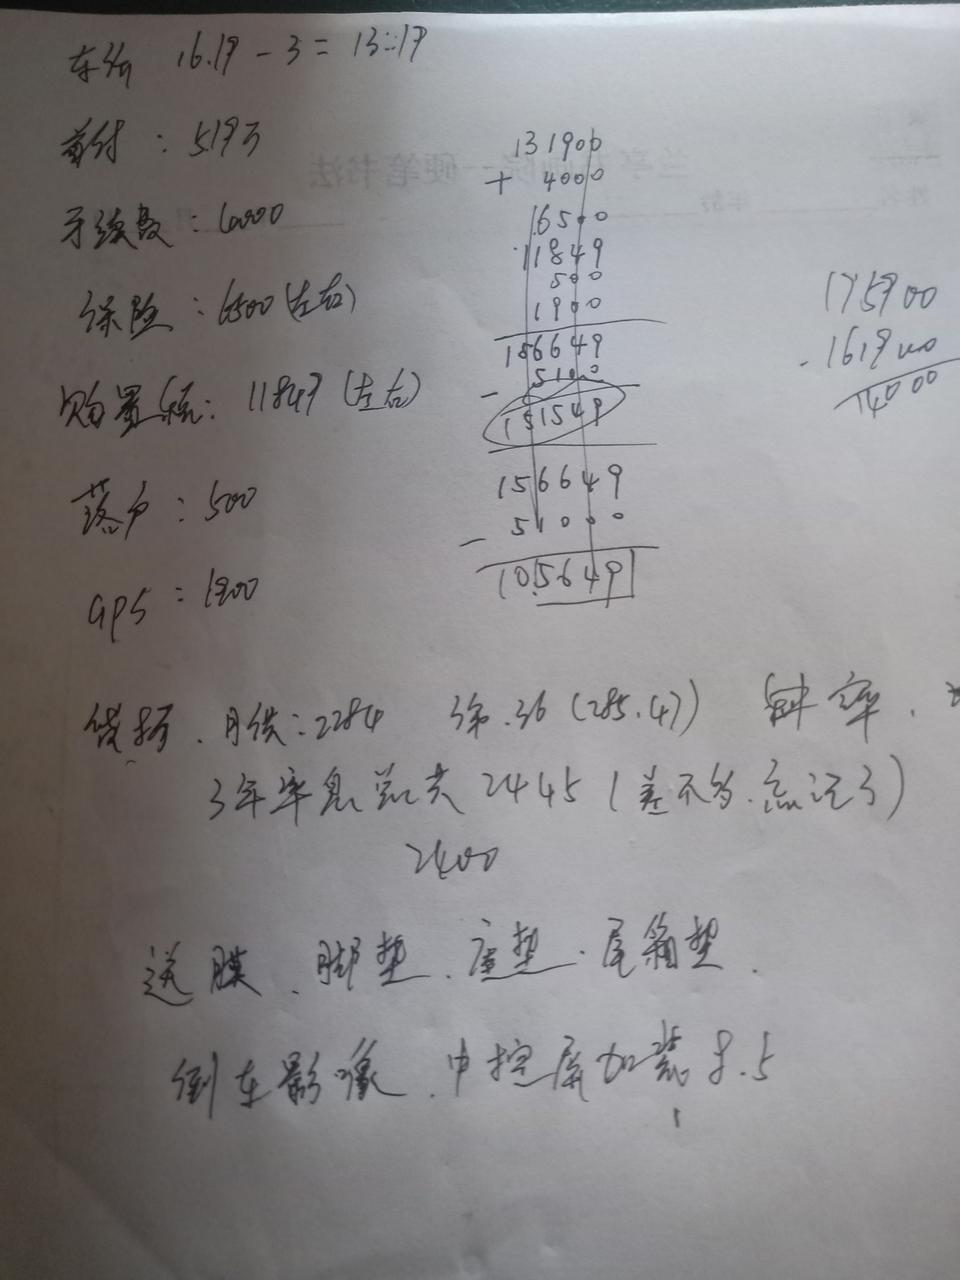 车价 16.19 - 3 = 13.19
首付：519万
手续费：6000
保险：6500（左右）
购置税：11849（左右）
落户：500
GPS：1900
131900
+ 4000
6500
11849
500
1900
156649
- 5100
151549
156649
- 51000
105649
175900
- 161900
14000
贷款、月供：2284
36（285.47）
3年率息总共2445（差不多、忘记了）
2400
送膜、脚垫、座垫、尾箱垫、
倒车影像、中控屏加装8.5